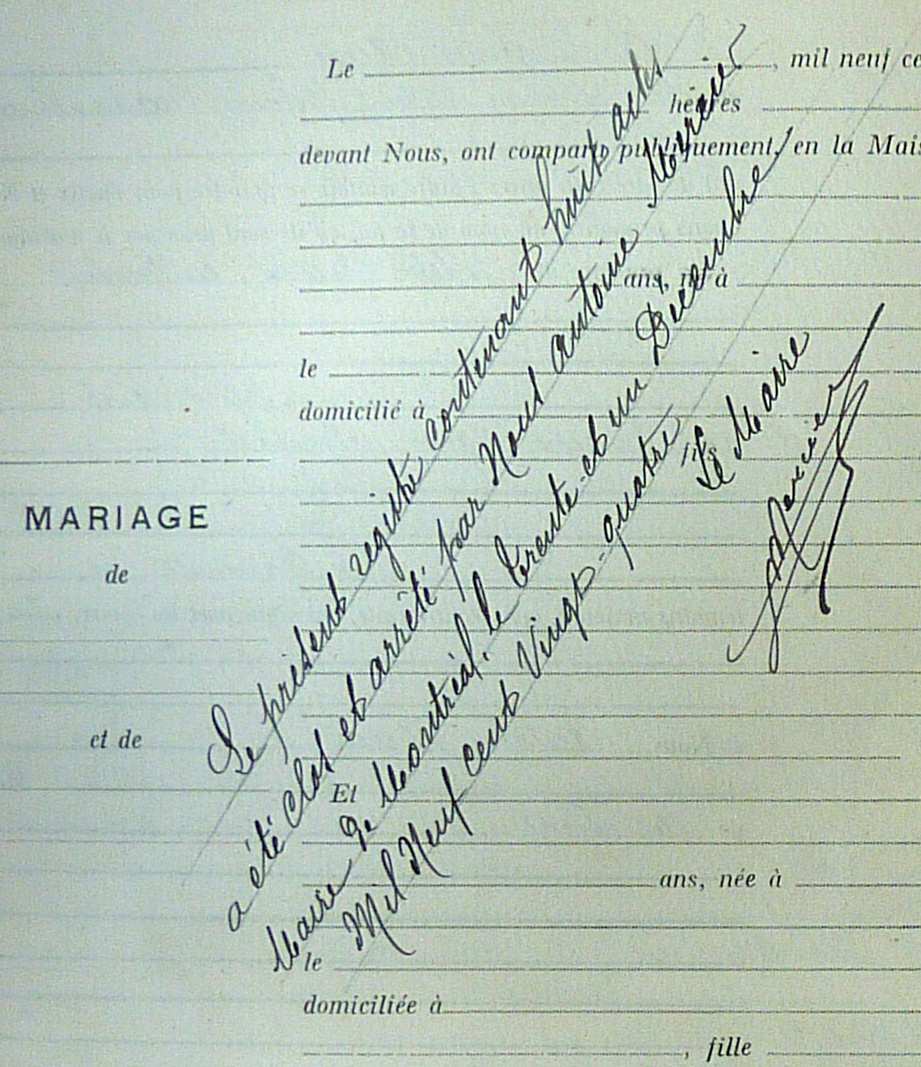 Le , mil neuf ce
heures
devant Nous, ont comparu publiquement, en la Mais
ans, né à
le
domicilié à
fils
MARIAGE
de
et de
Et
ans, née à
le
domiciliée à
, fille
Le présent registre contenant huit actes
a été clos et arrêté par Nous antoine
Maire de Montréal, le trente-et-un Décembre
Mil Neuf cent Vingt-quatre
Le Maire